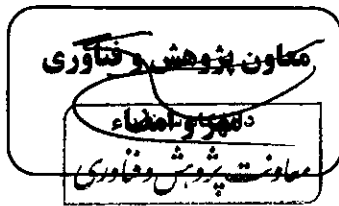 معاون پژوهش و فناوری
مهر و امضاء
معاونت پژوهش و فناوری